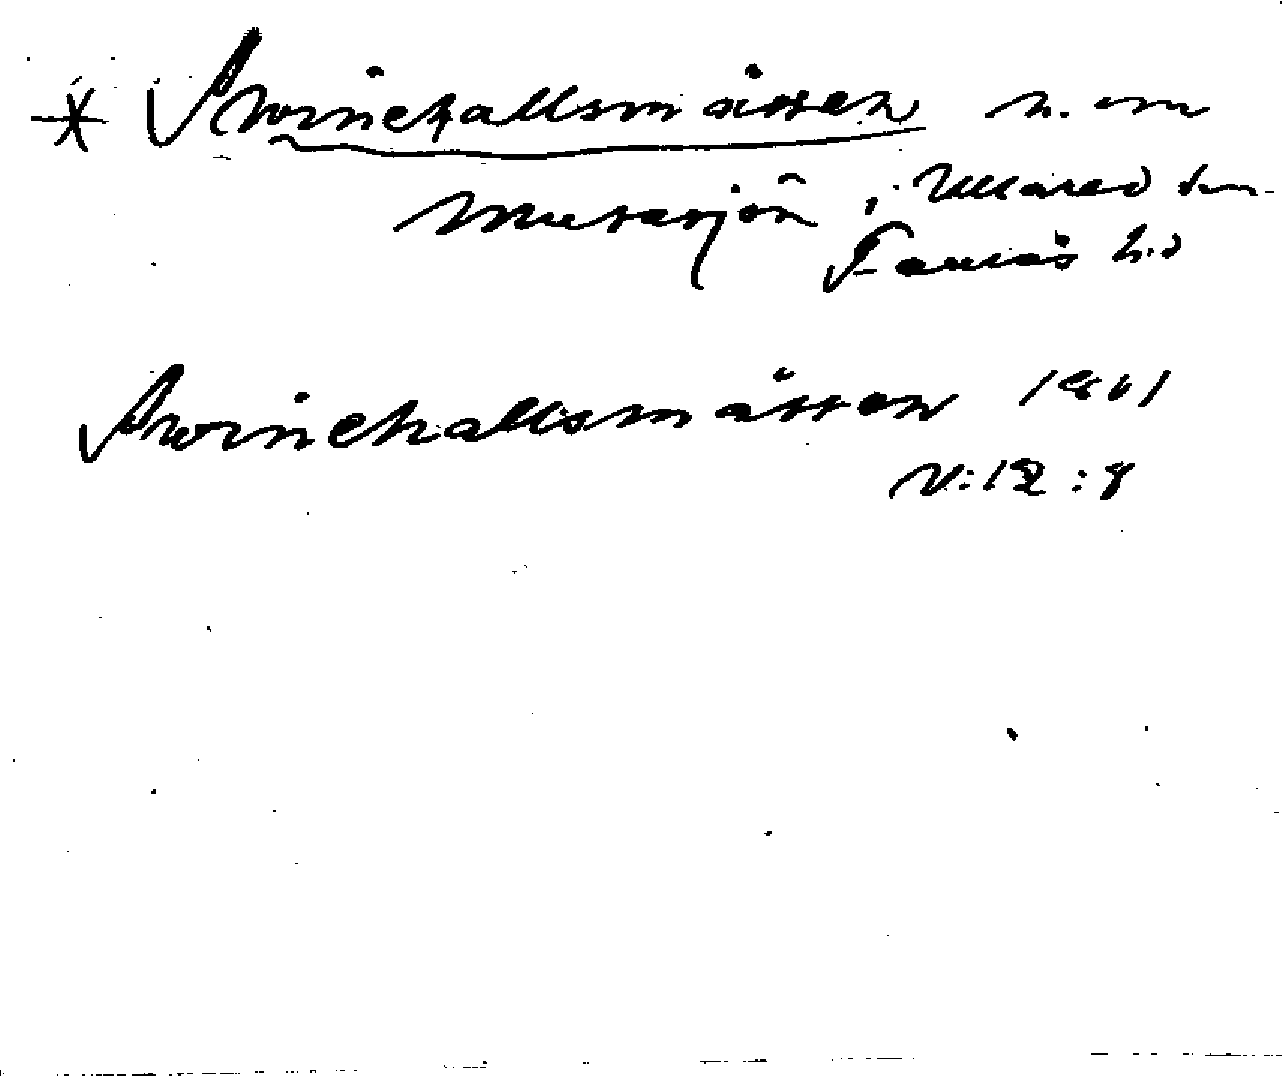 * Svinehallsmåssen n. om
Musasjön i Ullared sn
Faurås hd
Svinehallsmåssen 1801
V:12:8